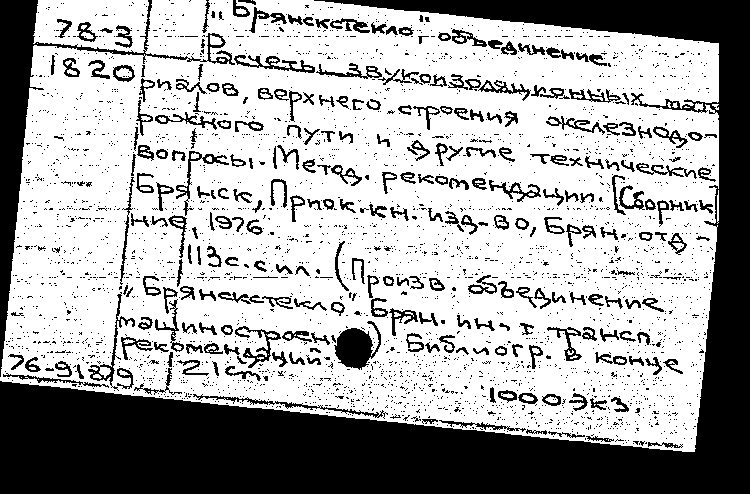 78-3
"Брянскстекло", объединение
1820
Расчеты звукоизоляционных мате
риалов, верхнего строения железнодо-
рожного пути и другие технические
вопросы. Метод. рекомендации. [Сборник]
Брянск, Приок.кн. изд-во, Брян. отд-
ние, 1976.
113с.с ил. (Произв. объединение
"Брянскстекло". Брян. ин-т трансп.
машиностроени). Библиогр. в конце
рекомендаций.
76-91829
21см.
1000 экз.